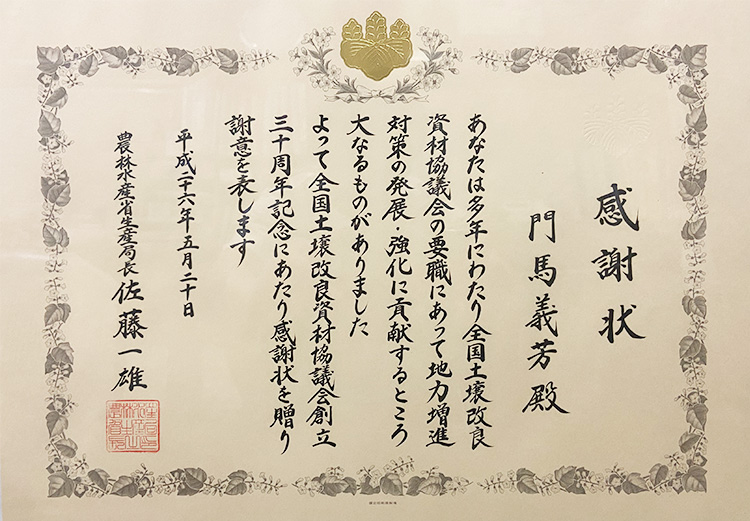 感謝状
門馬義芳殿
あなたは多年にわたり全国土壌改良
資材協議会の要職にあって地力増進
対策の発展・強化に貢献するところ
大なるものがありました
よって全国土壌改良資材協議会創立
三十周年記念にあたり感謝状を贈り
謝意を表します
平成二十六年五月二十日
農林水産省生産局長 佐藤一雄